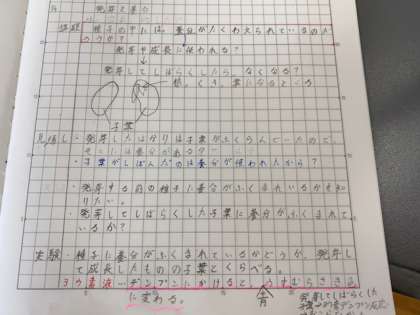 発芽と養分
課題 種子の中には、養分がたくわえられているのだ
ろうか?
発芽や成長に使われる?
↓
発芽してしばらくしたら、なくなる?
根、くき、葉になるところ
子葉
見通し・発芽したばかりは子葉がふくらんでいたので、
そこには養分がある?
・子葉がしぼんだのは養分が使われたから?
・発芽する前の種子に養分がふくまれているかを知
りたい。
・発芽してしばらくした子葉に養分がふくまれて
いるか?
実験・種子に養分がふくまれているかどうか、発芽し
て成長したものの子葉とくらべる。
ヨウ素液…デンプンにかけると、うすむらさき色
に変わる。
青
発芽してしばらくした